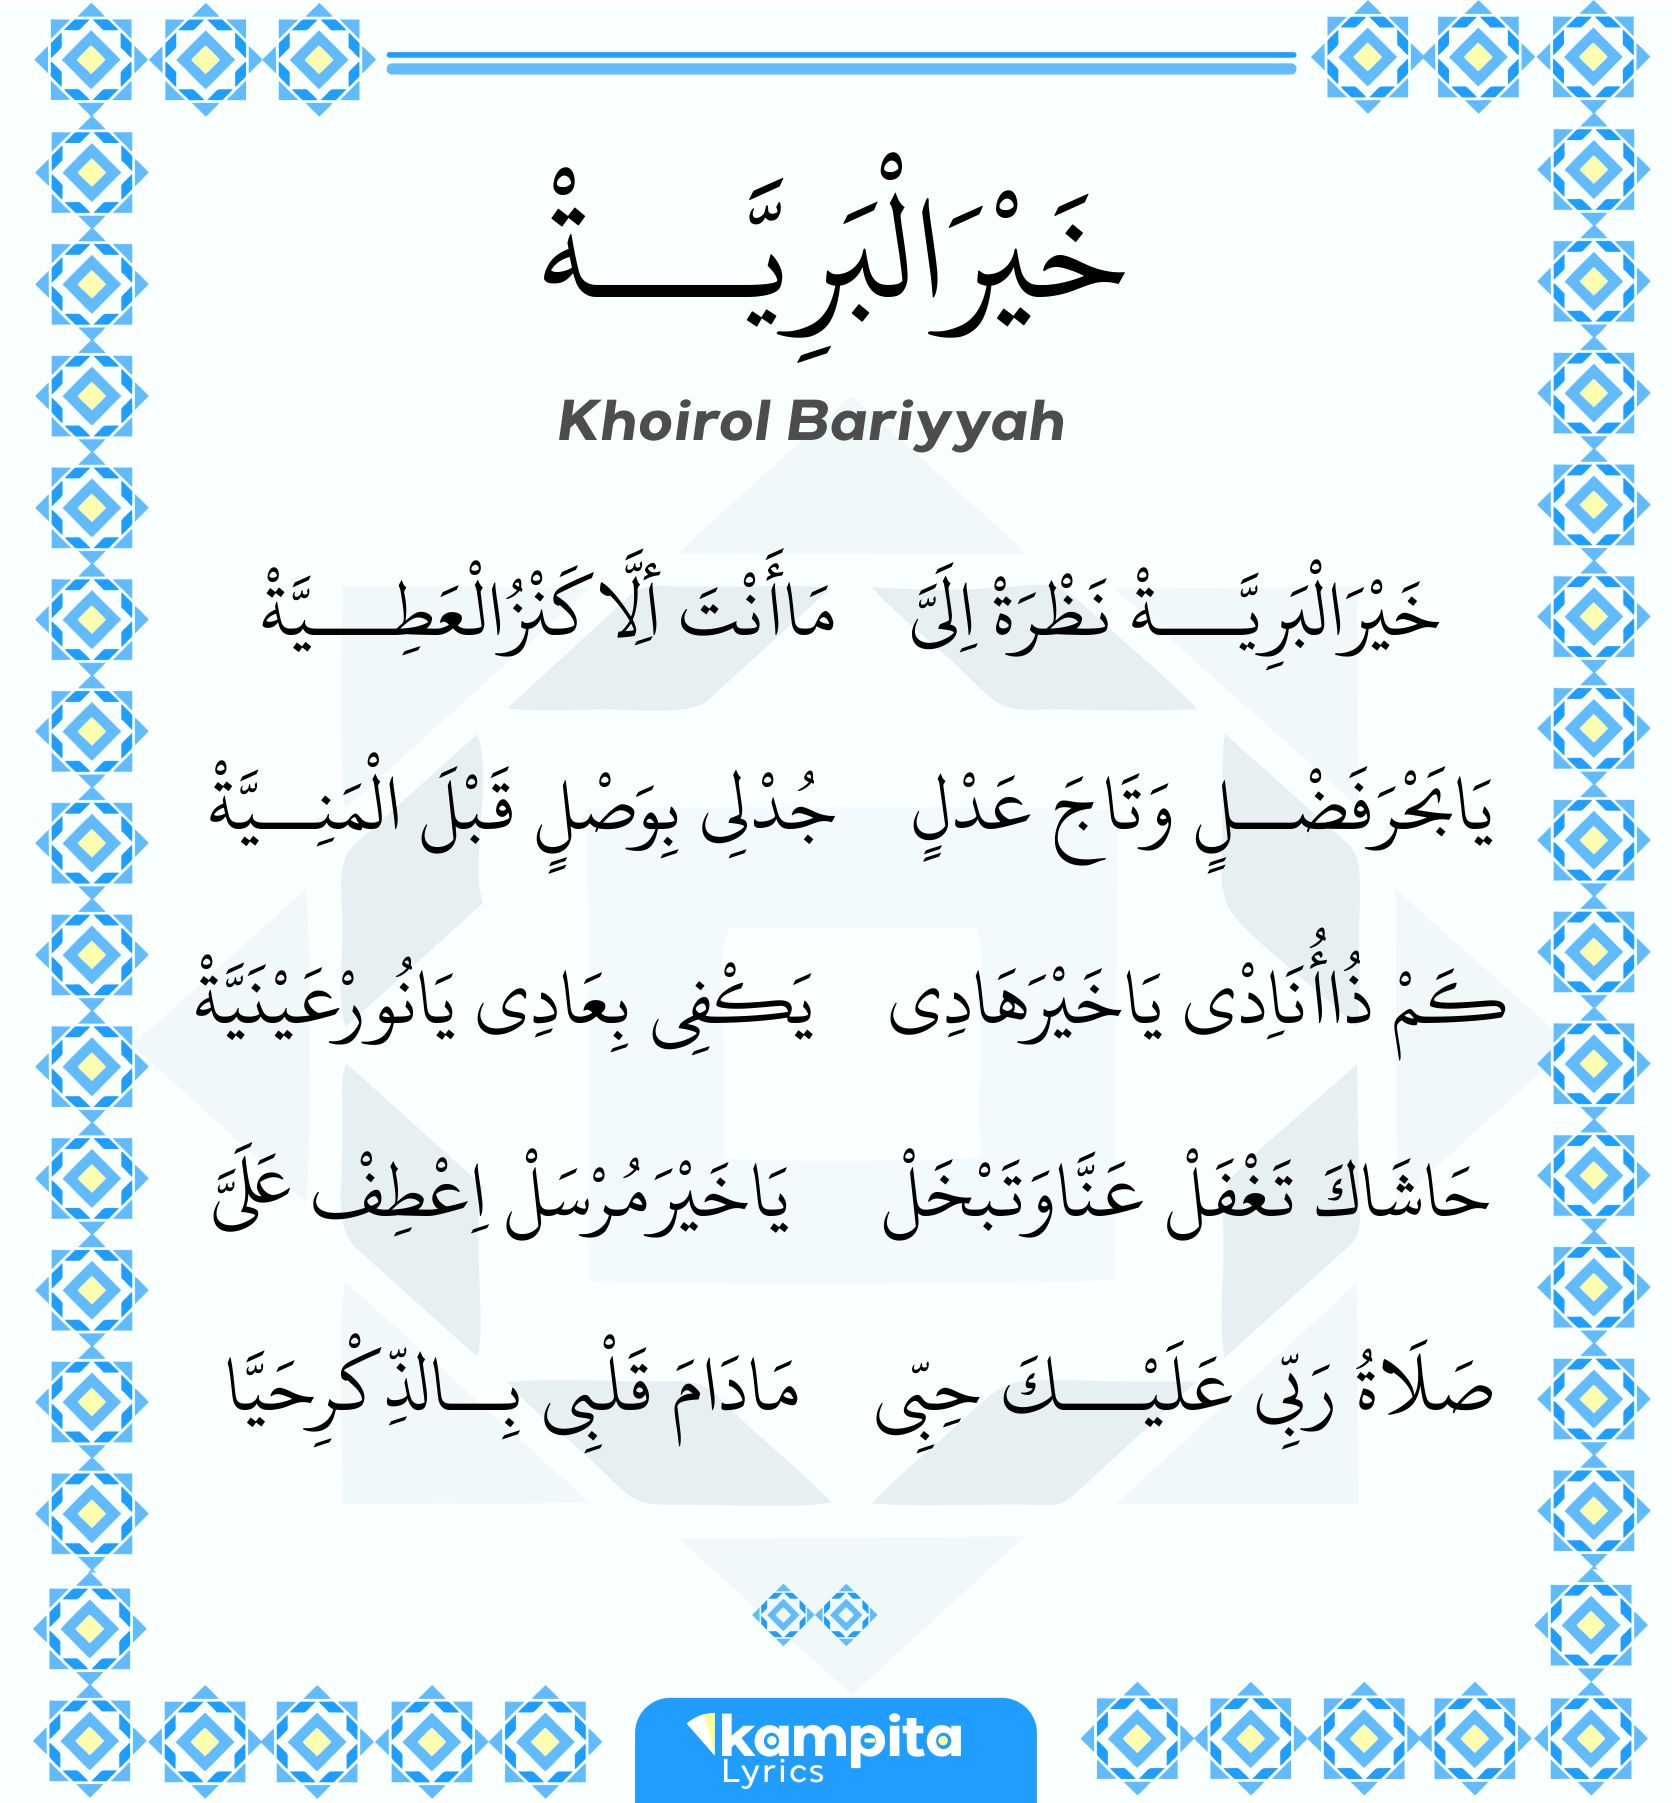 خَيْرَالْبَرِيَّـــةْ
Khoirol Bariyyah
خَيْرَالْبَرِيَّـــةْ نَظْرَةْ اِلَيَّ مَاأَنْتَ أِلَّا كَنْزُالْعَطِـــيَّةْ
يَابَحْرَفَضْـــلٍ وَتَاجَ عَدْلٍ جُدْلِى بِوَصْلٍ قَبْلَ الْمَنِـــيَّةْ
كَمْ ذُاأُنَاِدْى يَاخَيْرَهَادِى يَكْفِى بِعَادِى يَانُورْعَيْنَيَّةْ
حَاشَاكَ تَغْفَلْ عَنَّاوَتَبْخَلْ يَاخَيْرَمُرْسَلْ اِعْطِفْ عَلَيَّ
صَلَاةُ رَبِّى عَلَيْـــكَ حِبِّى مَادَامَ قَلْبِى بِـــالذِّكْرِحَيَّا
kampita
Lyrics